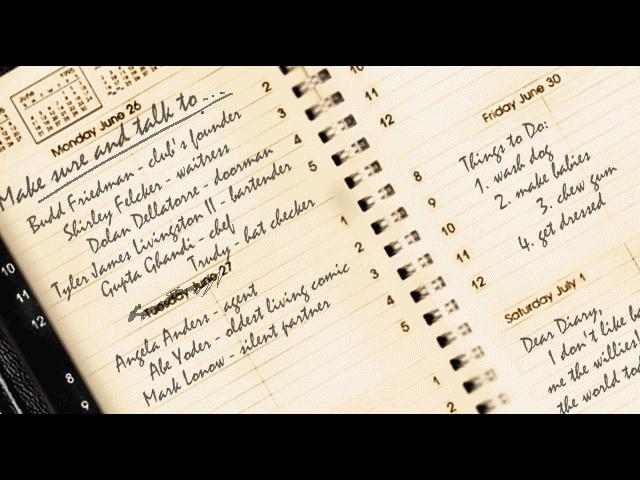 June 1995
Monday June 26
Make sure and talk to...
Budd Friedman - club's founder
Shirley Felcker - waitress
Dolan Dellatorre - doorman
Tyler James Livingston II - bartender
Gupta Ghandi - chef
Trudy - hat checker
Tuesday June 27
Angela Anders - agent
Abe Yoder - oldest living comic
Mark Lonow - silent partner
10
11
12
8
9
2
3
4
5
1
2
3
4
5
1
2
10
11
12
8
9
10
11
12
Friday June 30
Things to Do:
1. wash dog
2. make babies
3. chew gum
4. get dressed
Saturday July 1
Dear Diary,
I don't like ba
me the willies!
the world tod